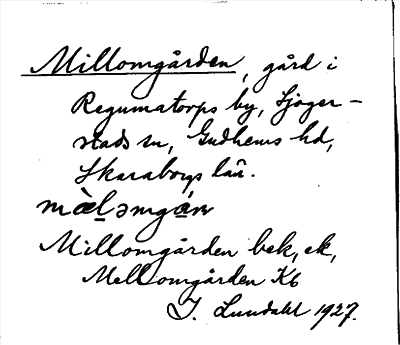 Millomgården, gård i
Regumatorps by, Sjöger-
stads sn, Gudhems hd,
Skaraborgs län.
mæ̀l̥əmgán
Millomgården bek, ek,
Mellomgården Kb
J. Lundahl 1927.